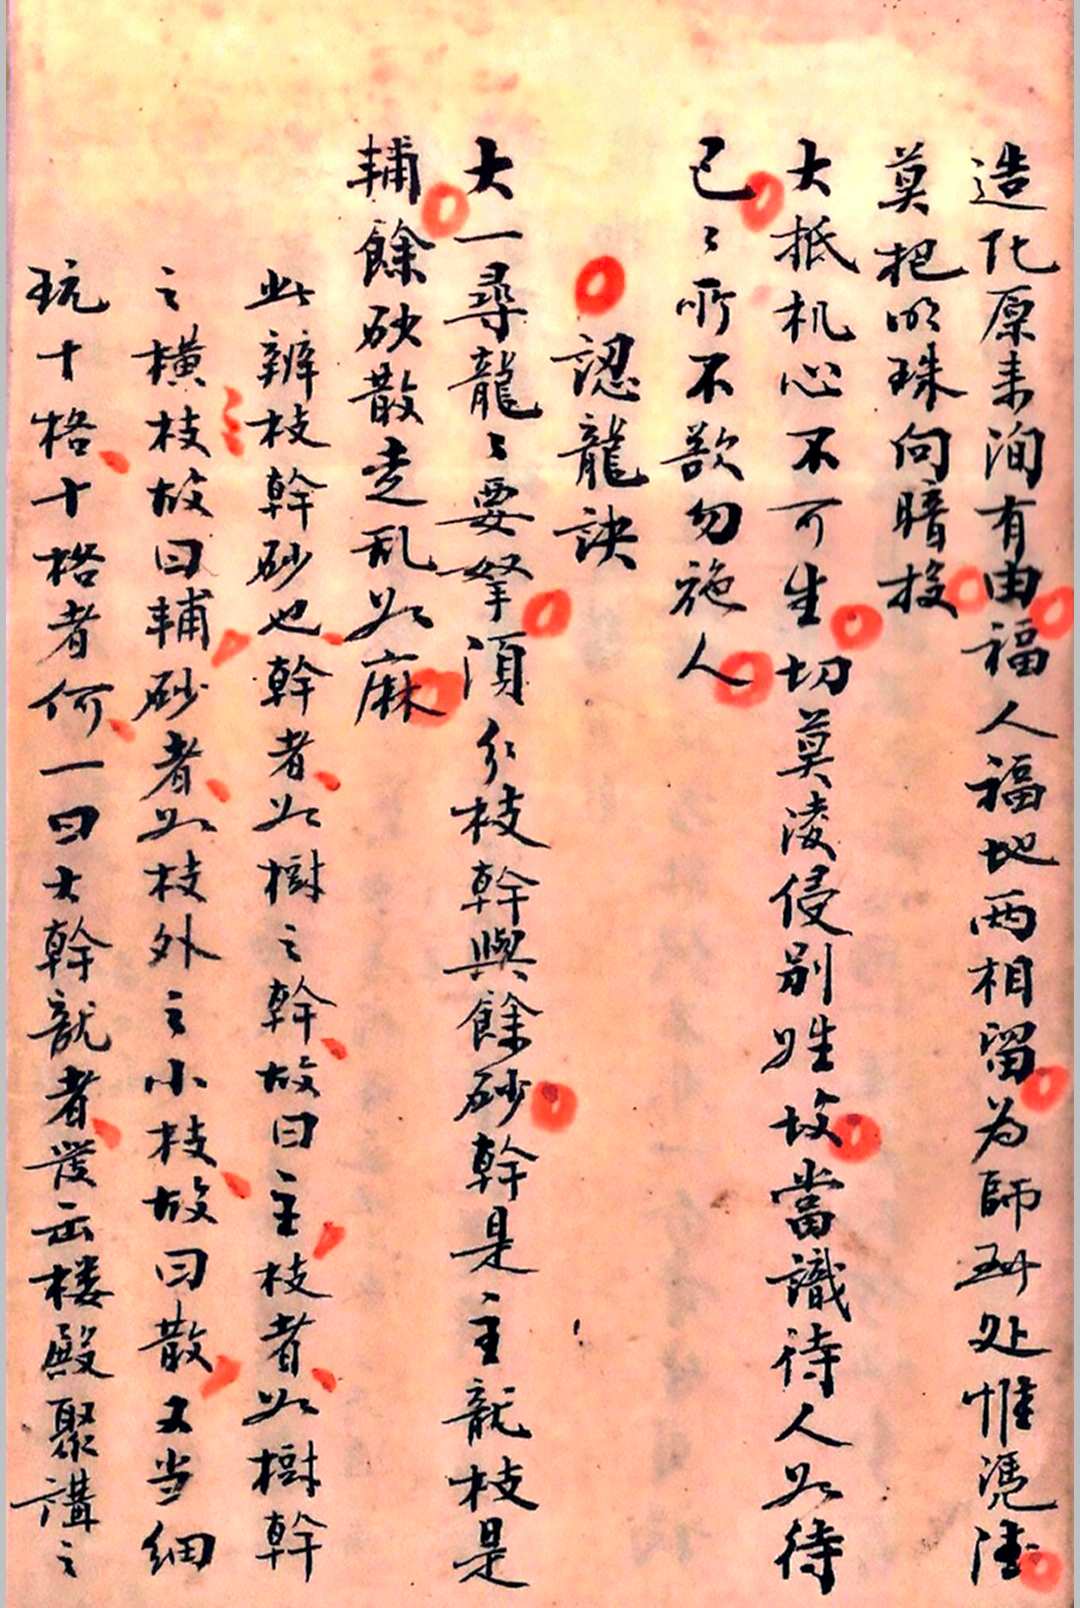 造化原来洵有由福人福地两相留为師到处惟憑德
莫把明珠向暗投
大抵机心不可生切莫凌侵别姓坟當識待人如待
己〻所不欲勿施人
認龍訣
大一尋龍〻要拏須分枝幹與餘砂幹是主龍枝是
輔餘砂散走乱如麻
此辨枝幹砂也幹者如樹之幹故曰主枝者如樹幹
之横枝故曰輔砂者如枝外之小枝故曰散又当細
玩十格十格者何一曰大幹龍者發岳楼殿聚講之